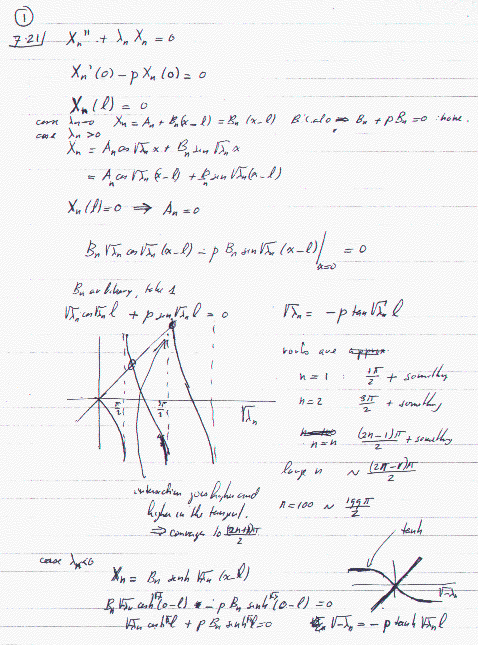 ①
7.21/ Xn'' + λn Xn = 0
Xn'(0) − p Xn(0) = 0
Xn(l) = 0
case λn=0 Xn = An + Bn(x−l) = Bn(x−l) Bn + pBn = 0
case λn > 0
Xn = An cos √λn x + Bn sin √λn x
= An cos √λn (x−l) + Bn sin √λn (x−l)
Xn(l)=0 ⟹ An = 0
Bn √λn cos √λn (x−l) − p Bn sin √λn (x−l) |x=0 = 0
Bn arbitrary, take 1
√λn cos √λn l + p sin √λn l = 0
√λn = −p tan √λn l
roots are
n = 1 : 1π/2 + something
n = 2 3π/2 + something
n = n (2n−1)π/2 + something
large n ~ (2n−1)π/2
n = 100 ~ 199π/2
π/2 3π/2 √λn
intersection goes higher and
higher in the tangent.
⟹ converges to (2n+1)π/2
tanh
√−λn
case λn<0
Xn = Bn sinh √λn (x−l)
Bn √λn cosh √λn (0−l) − p Bn sinh √λn (0−l) = 0
√λn cosh √λn l + p Bn sinh √λn l = 0
√−λn = −p tanh √λn l